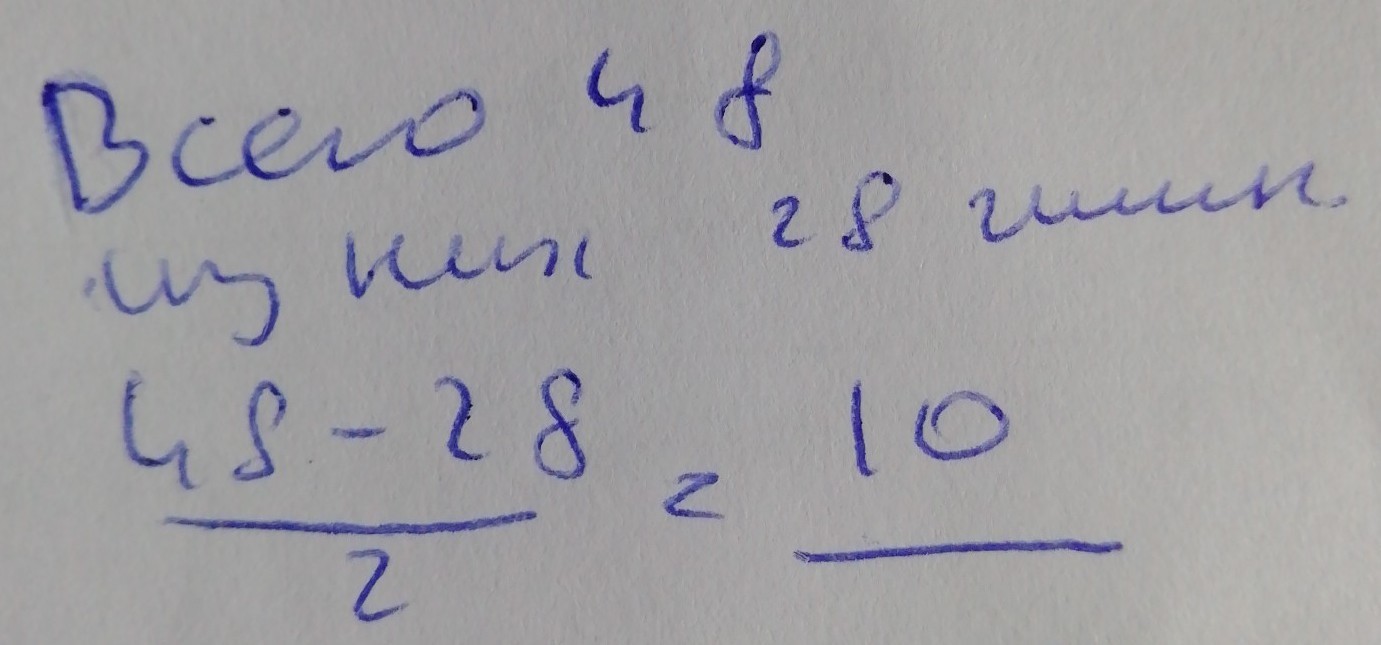 Всего 48
из них 28 гшик
48 - 28
2
= 10